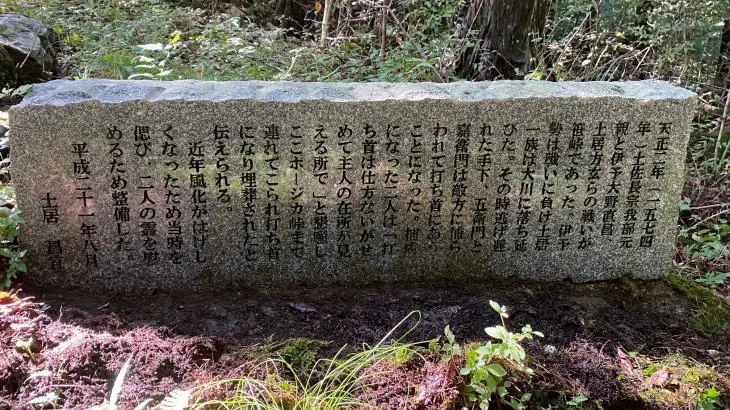 天正二年(一五七四
年)土佐長宗我部元
親と伊予大野直昌、
土居方玄らの戦いが
笹峠であった。伊予
勢は戦いに負け土居
一族は大川に落ち延
びた。その時逃げ遅
れた手下、五斎門と
嘉衛門は敵方に捕ら
われて打ち首にあう
ことになった。捕虜
になった二人は「打
ち首は仕方ないがせ
めて主人の在所が見
える所で」と懇願し
ここホージカ峠まで
連れてこられ打ち首
になり埋葬されたと
伝えられる。
近年風化がはげし
くなったため当時を
偲び、二人の霊を慰
めるため整備した。
平成二十一年八月
土居 昌